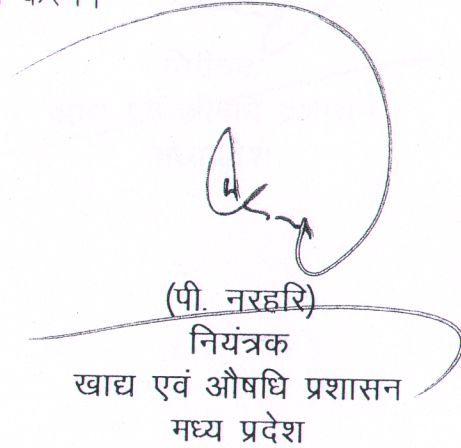 (पी. नरहरि)
नियंत्रक
खाद्य एवं औषधि प्रशासन
मध्य प्रदेश